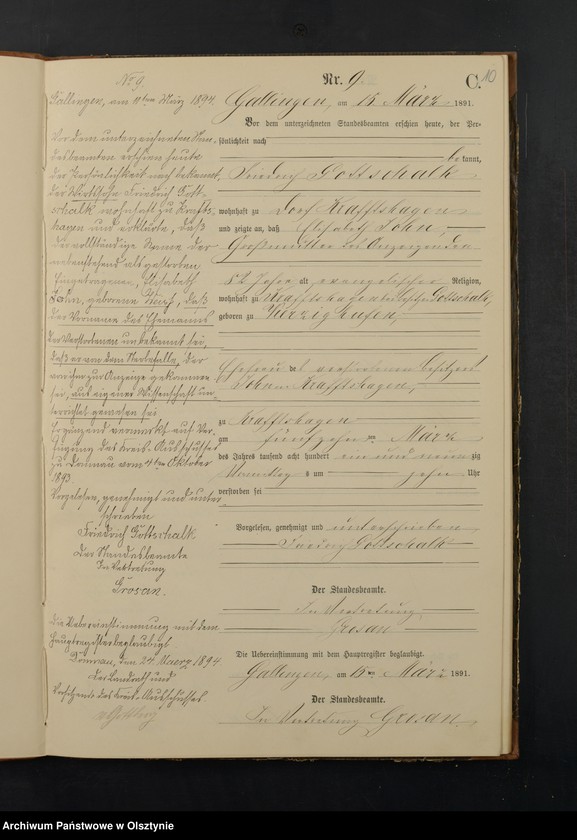 Nr. 9
C.
10
Gallingen, am 15 März 1891.
Vor dem unterzeichneten Standesbeamten erschien heute, der Per-
sönlichkeit nach
bekannt,
Friedrich Gottschalk
wohnhaft zu Dorf Krafftshagen
und zeigte an, daß Elisabeth John,
Großmutter des Anzeigenden
82 Jahre alt evangelischer Religion,
wohnhaft zu Krafftshagen Gottschalk,
geboren zu
Ehefrau des verstorbenen Besitzers
John Krafftshagen,
zu Krafftshagen
am fünfzehnten März
des Jahres tausend acht hundert ein und neunzig
Vormittags um zehn Uhr
verstorben sei
Vorgelesen, genehmigt und unterschrieben
Friedrich Gottschalk
Der Standesbeamte.
In Vertretung
Grosan
Die Uebereinstimmung mit dem Hauptregister beglaubigt.
Gallingen, am 15ten März 1891.
Der Standesbeamte.
In Vertretung Grosan.
No 9.
Gallingen, am März 1894.
Vor dem unterzeichneten Stan-
desbeamten erschien heute
der Persönlichkeit nach bekannt,
der Friedrich Gott-
schalk wohnhaft zu Krafts-
hagen und erklärte, daß
der vollständige Name der
nebenstehend als gestorben
Eingetragenen, Elisabeth
John, geborene, daß
der Vorname des Ehemanns
der Verstorbenen unbekannt sei,
daß er von dem Sterbefalle, der
vorher zur Anzeige gekommen
sei, aus eigener Wissenschaft un-
terrichtet gewesen sei.
Ergänzend vermerkt auf Ver-
fügung des Kreis-Ausschusses
zu Domnau vom 4ten Oktober
1893.
Vorgelesen, genehmigt und unter-
schrieben
Friedrich Gottschalk
Der Standesbeamte
In Vertretung
Grosan.
Die Uebereinstimmung mit dem
Hauptregister beglaubigt
Domnau, den 24. Maerz 1894
Der Landrath und
Vorsitzende des Kreis-Ausschusses
Archiwum Państwowe w Olsztynie